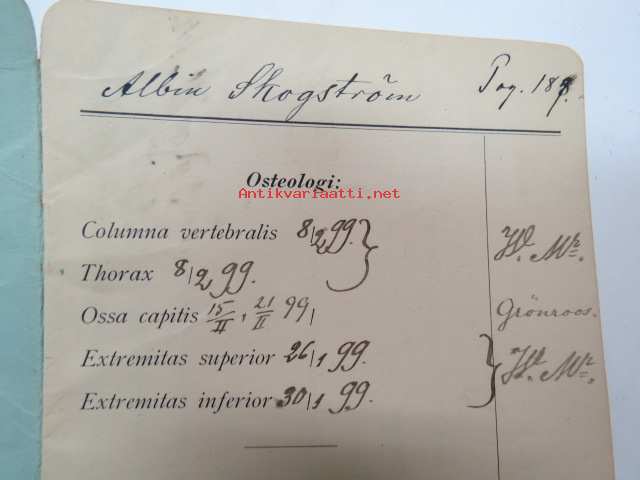 Albin Skogström
Osteologi:
Antikvariaatti.net
Columna vertebralis 8/2 99.
Thorax 8/2 99.
Ossa capitis 15/II, 21/II 99
Grönroos.
Extremitas superior 26/1 99.
Extremitas inferior 30/1 99.